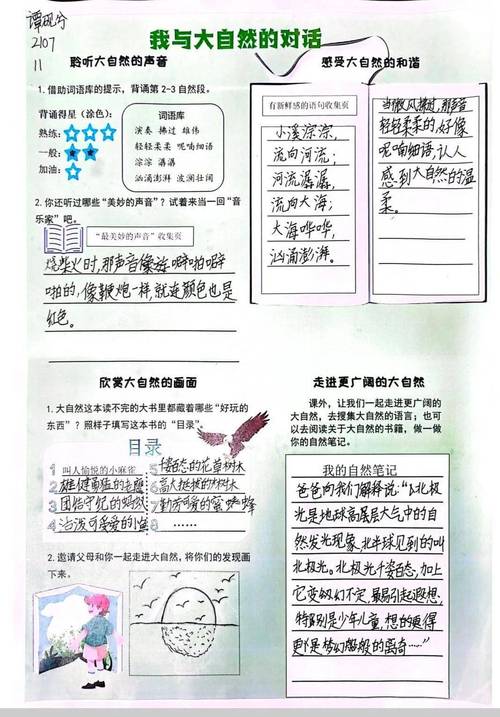 2107
11
我与大自然的对话
聆听大自然的声音
1. 借助词语库的提示，背诵第 2-3 自然段。
背诵得星（涂色）：
熟练：
一般：
加油：
词语库
演奏 拂过 雄伟
轻轻柔柔 呢喃细语
淙淙 潺潺
汹涌澎湃 波澜壮阔
2. 你还听过哪些“美妙的声音”？试着来当一回“音
乐家”吧。
“最美妙的声音”收集页
烧柴火时，那声音像 噼啪噼
啪的，像鞭炮一样，就连颜色也是
红色。
感受大自然的和谐
有新鲜感的语句收集页
小溪淙淙，
流向河流；
河流潺潺，
流向大海；
大海哗哗，
汹涌澎湃。
当微风拂过，那声音
轻轻柔柔的，好像
呢喃细语，让人
感到大自然的温
柔。
欣赏大自然的画面
1. 大自然这本读不完的大书里都藏着哪些“好玩的
东西”？照样子填写这本书的“目录”。
目录
1 叫人愉悦的小麻雀
2 雄健勇猛的老鹰
3 团结守纪的蚂蚁
4 活泼可爱的小
5 态的花草树木
6 高大挺拔的树木
7 勤劳可爱的蜜蜂
8 ……
2. 邀请父母和你一起走进大自然，将你们的发现画
下来。
走进更广阔的大自然
课外，让我们一起走进更广阔的
大自然，去搜集大自然的语言；也可
以去阅读关于大自然的书籍，做一做
你的自然笔记。
我的自然笔记
爸爸向我们解释说：“北极
光是地球高层大气中的自
然发光现象，北半球见到的叫
北极光。北极光千姿百态，加上
它变幻不定，最易引起遐想，
特别是少年儿童，想的更得
更是梦幻般的离奇……”